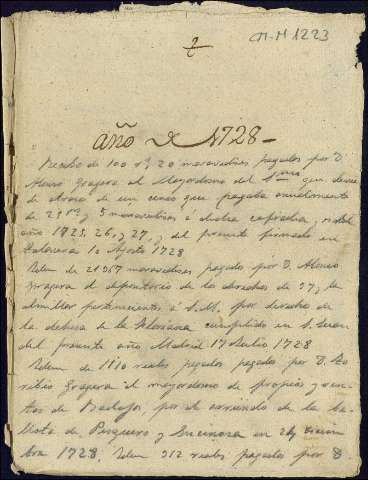 M-H 1223
año de 1728-
Recibo de 100 rs 20 maravedises pagados por D.
Alonso Gragera al Mayordomo del Smo que deve
de atraso de un censo que pagaba anualmente
de 25 rs y 5 maravedises á dicha cofradia,
año 1725, 26, y 27, y del presente firmado en
Talavera 10 Agosto 1728
Idem de 21967 maravedises pagados por D. Alonso
Gragera al depositario de los derechos de
pertenecientes á S. M. por derecho de
la dehesa de la cumplido en S. Juan
del presente año Madrid 17 Julio 1728
Idem de 1110 reales pagados por D. To
ribio Gragera al mayordomo de propios y ren
tas de Badajoz, por el arriendo de la be
llota de Pesquero y en 24 Diciem
bre 1728. Idem 312 reales pagados por D.